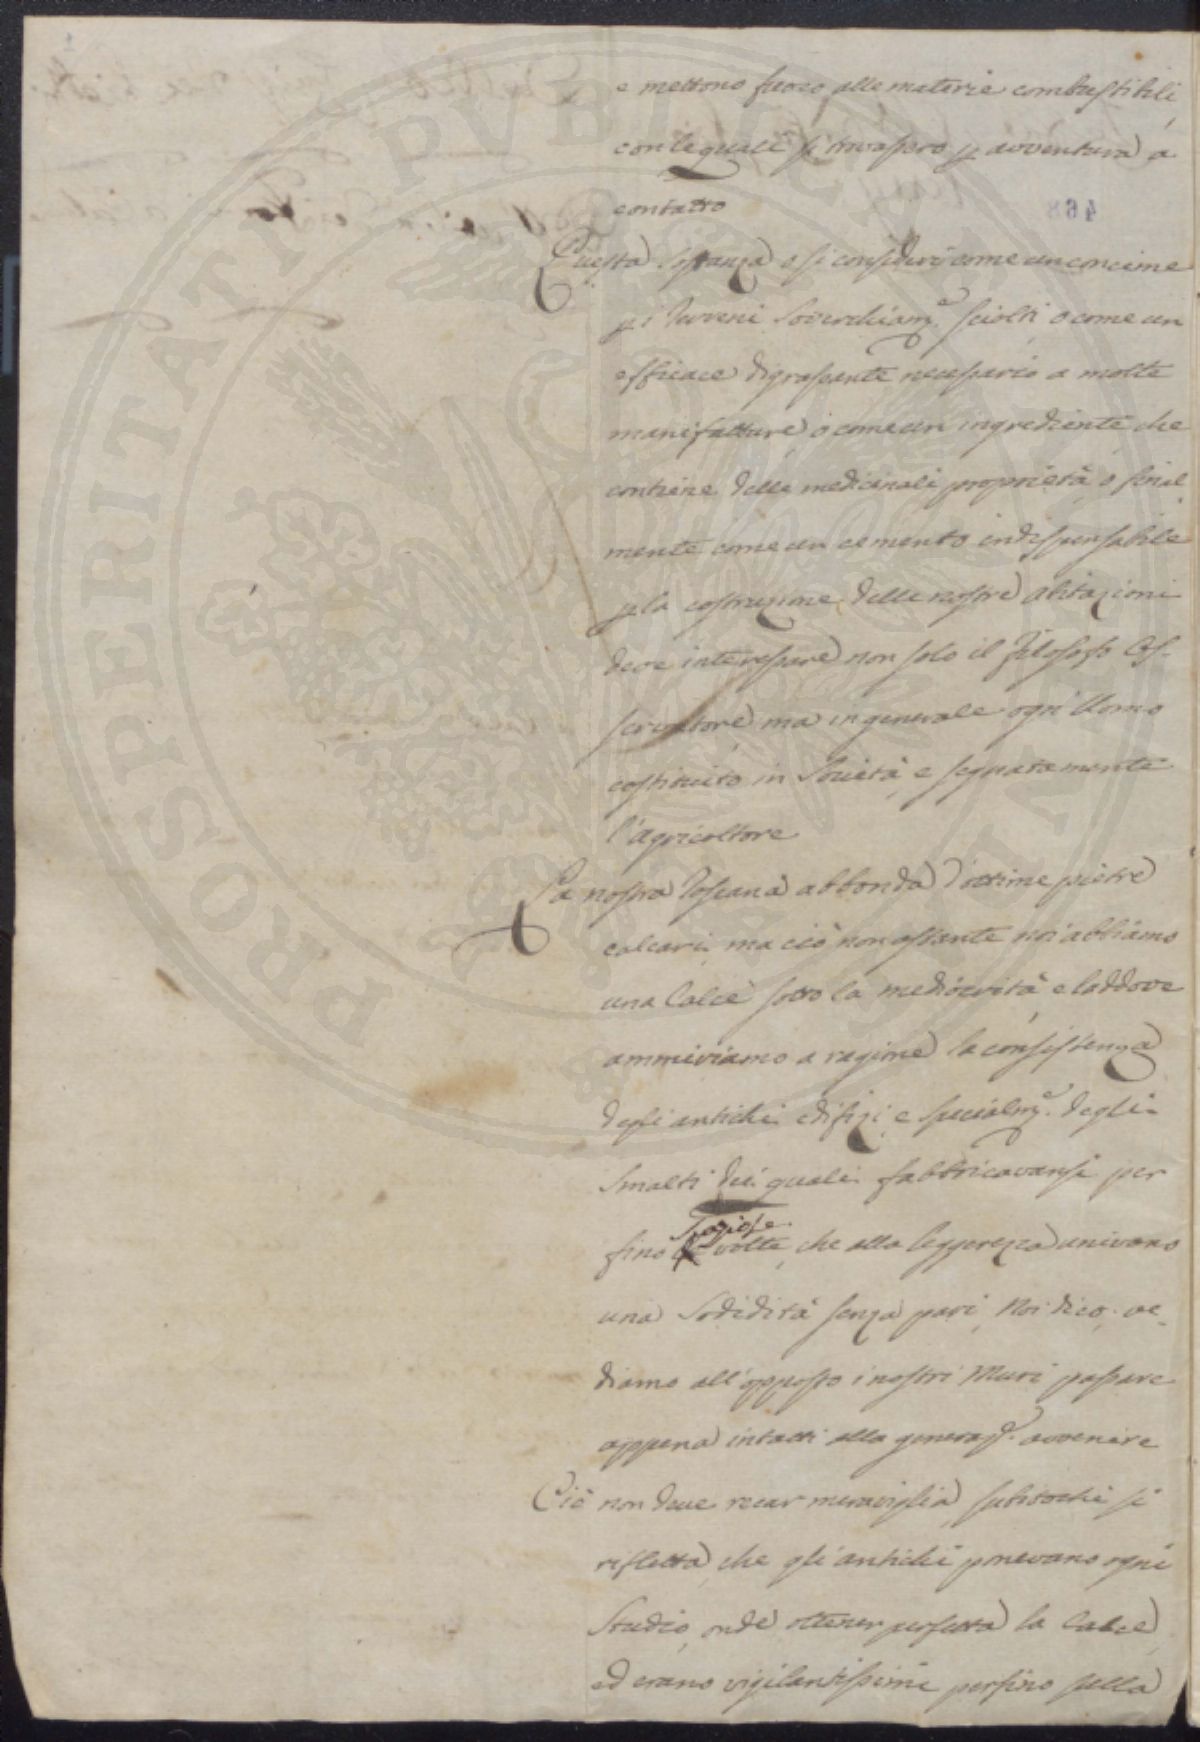 e mettono fuoco alle materie combustibili,
con le quali si trovassero p avventura a
contatto
Questa sostanza o si consideri come un concime
p i terreni soverchiam.e sciolti, o come un
efficace digrassante necessario a molte
manifatture, o come un ingrediente, che
contiene delle medicinali proprietà, o final
mente come un cemento indispensabile
p la costruzione delle nostre abitazioni
deve interessare non solo il Filosofo Os-
servatore, ma in generale ogn'Uomo
costituito in Società, e segnatamente
l'agricoltore
La nostra Toscana abbonda d'ottime pietre
calcari, ma ciò non ostante noi abbiamo
una Calce sotto la mediocrità, e laddove
ammiriamo a ragione la consistenza
degli antichi edifizi, e specialm.e degli
smalti dei quali fabbricavansi per
fino le volte, che alla leggerezza univano
una Sodidità senza pari, Noi dico, ve-
diamo all'opposto i nostri Muri passare
appena intatti alla generaz.e avvenire
Ciò non deve recar meraviglia, subitochè si
rifletta, che gli antichi ponevano ogni
Studio, onde ottener perfetta la Calce,
ed erano vigilantissimi perfino sulla
468
PROSPERITATI PUBLICAE